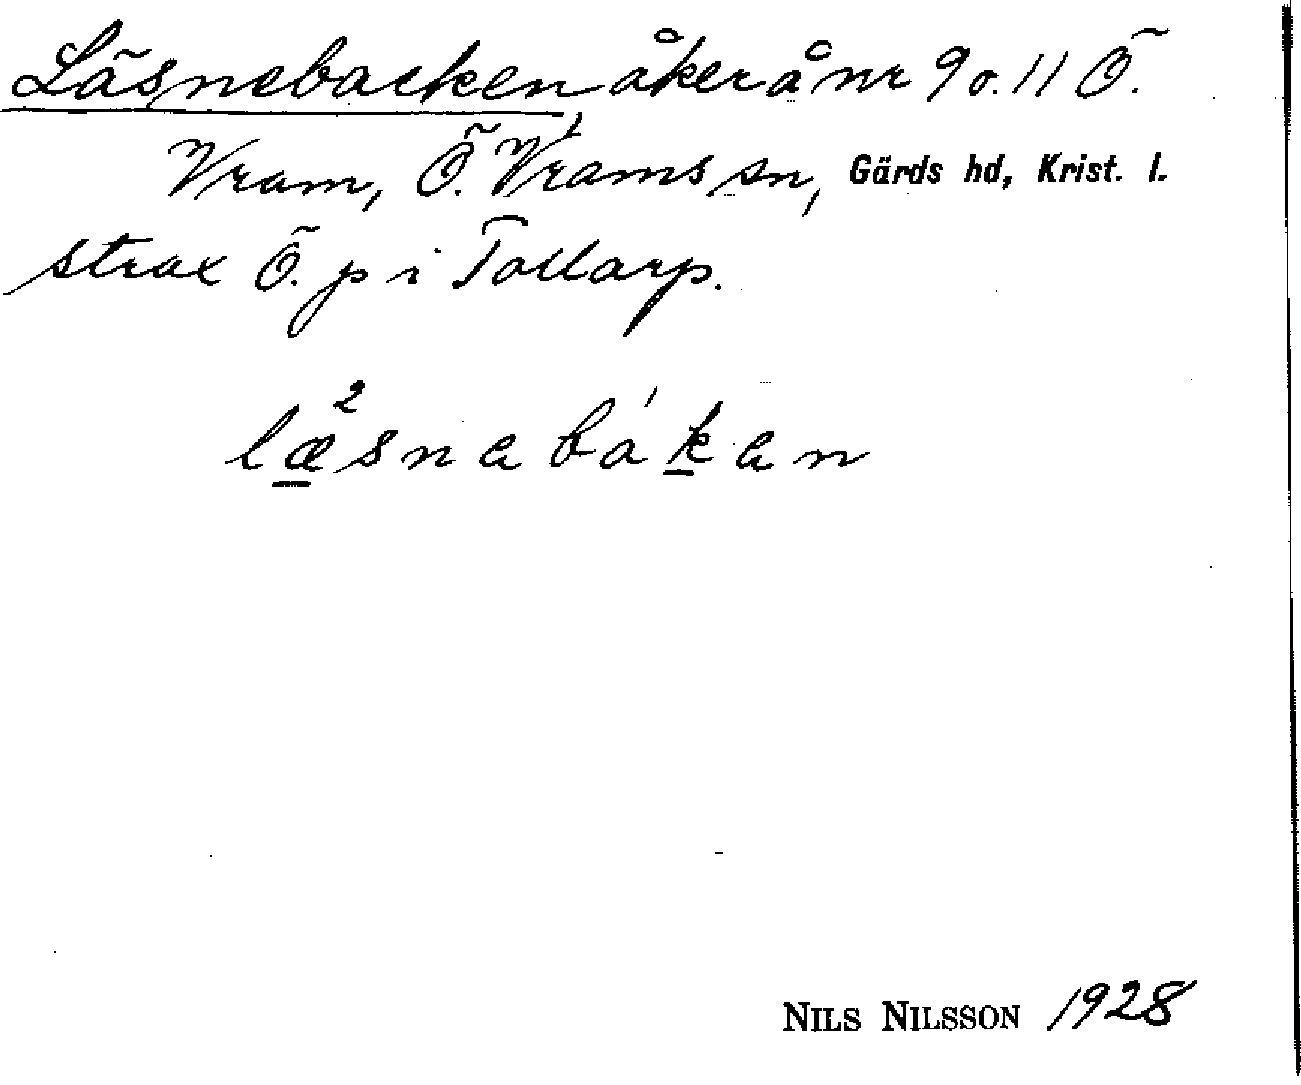 Läsnebacken, åker å nr 9 o. 11 Ö.
Vram, Ö. Vrams sn, Gärds hd, Krist. l.
strax Ö. p i Tollarp.
læ²snabákan
NILS NILSSON 1928